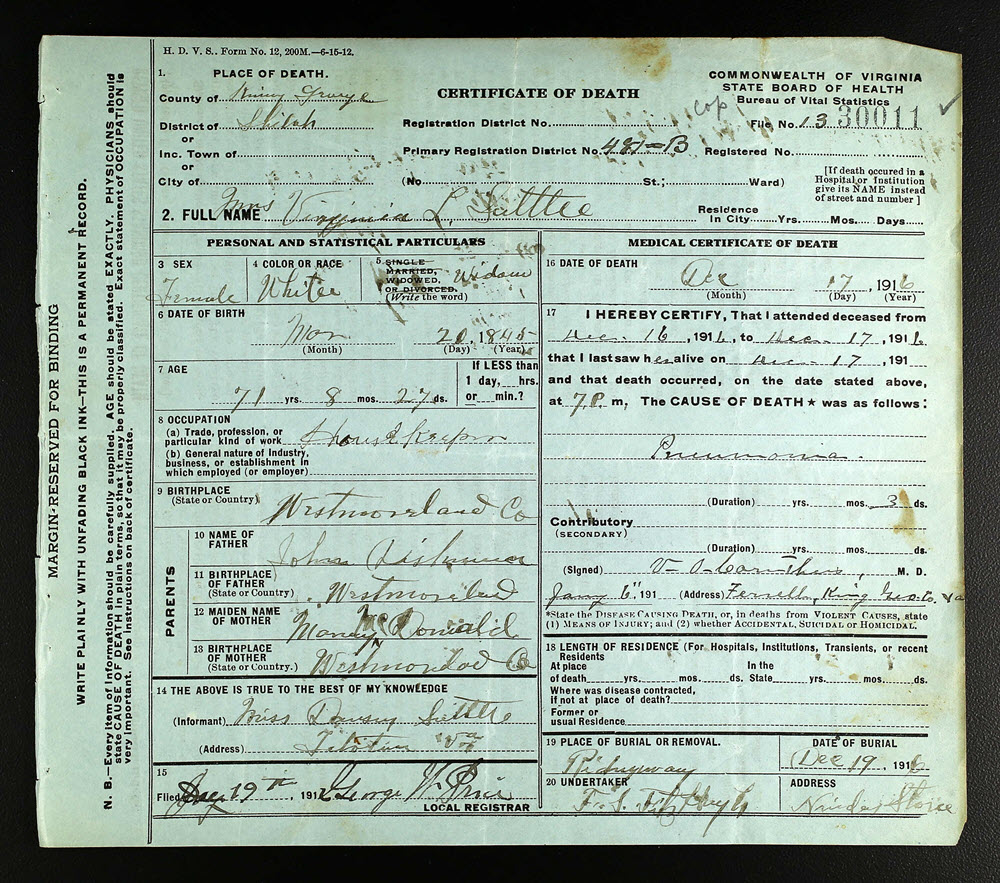 H. D. V. S.. Form No. 12, 200M.—6-15-12.
1. PLACE OF DEATH.
County of King George
District of Shiloh
or
Inc. Town of
or
City of
CERTIFICATE OF DEATH
Registration District No.
Primary Registration District No. 481-B
(No. St.; Ward)
COMMONWEALTH OF VIRGINIA
STATE BOARD OF HEALTH
Bureau of Vital Statistics
Cop
File No. 13 30011 ✓
Registered No.
[If death occured in a
Hospital or Institution
give its NAME instead
of street and number ]
2. FULL NAME Mrs Virginia L. Suttle
Residence
In City Yrs. Mos. Days
PERSONAL AND STATISTICAL PARTICULARS
3 SEX
Female
4 COLOR OR RACE
White
5 SINGLE
MARRIED,
WIDOWED,
OR DIVORCED.
(Write the word)
Widow
6 DATE OF BIRTH
20, 1845
(Month) (Day) (Year)
7 AGE
71 yrs. 8 mos. 27 ds.
If LESS than
1 day, hrs.
or min.?
8 OCCUPATION
(a) Trade, profession, or
particular kind of work Housekeeper
(b) General nature of Industry,
business, or establishment in
which employed (or employer)
9 BIRTHPLACE
(State or Country)
Westmoreland Co
PARENTS
10 NAME OF
FATHER
John
11 BIRTHPLACE
OF FATHER
(State or Country)
Westmoreland
12 MAIDEN NAME
OF MOTHER
McDonald
13 BIRTHPLACE
OF MOTHER
(State or Country.)
Co
14 THE ABOVE IS TRUE TO THE BEST OF MY KNOWLEDGE
(Informant) Miss Suttle
(Address)
15
Filed 19th, 191 George W.
LOCAL REGISTRAR
MEDICAL CERTIFICATE OF DEATH
16 DATE OF DEATH
Dec 17, 1916
(Month) (Day) (Year)
17 I HEREBY CERTIFY, That I attended deceased from
Dec. 16, 1916, to Dec. 17, 1916
that I last saw her alive on Dec. 17, 191
and that death occurred, on the date stated above,
at 7 P. m, The CAUSE OF DEATH * was as follows:
Pneumonia.
(Duration) yrs. mos. 3 ds.
Contributory
(SECONDARY)
(Duration) yrs. mos. ds.
(Signed) M. D.
Jany 6", 191 (Address) King Geo. Co. Va
*State the DISEASE CAUSING DEATH, or, in deaths from VIOLENT CAUSES, state
(1) MEANS OF INJURY; and (2) whether ACCIDENTAL, SUICIDAL or HOMICIDAL.
18 LENGTH OF RESIDENCE (For Hospitals, Institutions, Transients, or recent
Residents
At place In the
of death yrs. mos. ds. State yrs. mos. ds.
Where was disease contracted,
if not at place of death?
Former or
usual Residence
19 PLACE OF BURIAL OR REMOVAL.
Ridgeway
DATE OF BURIAL
Dec 19, 1916
20 UNDERTAKER
F. S. Fitzhugh
ADDRESS
Store
MARGIN-RESERVED FOR BINDING
WRITE PLAINLY WITH UNFADING BLACK INK—THIS IS A PERMANENT RECORD.
N. B.—Every item of information should be carefully supplied. AGE should be stated EXACTLY. PHYSICIANS should
state CAUSE OF DEATH in plain terms, so that it may be properly classified. Exact statement of OCCUPATION is
very important. See instructions on back of certificate.